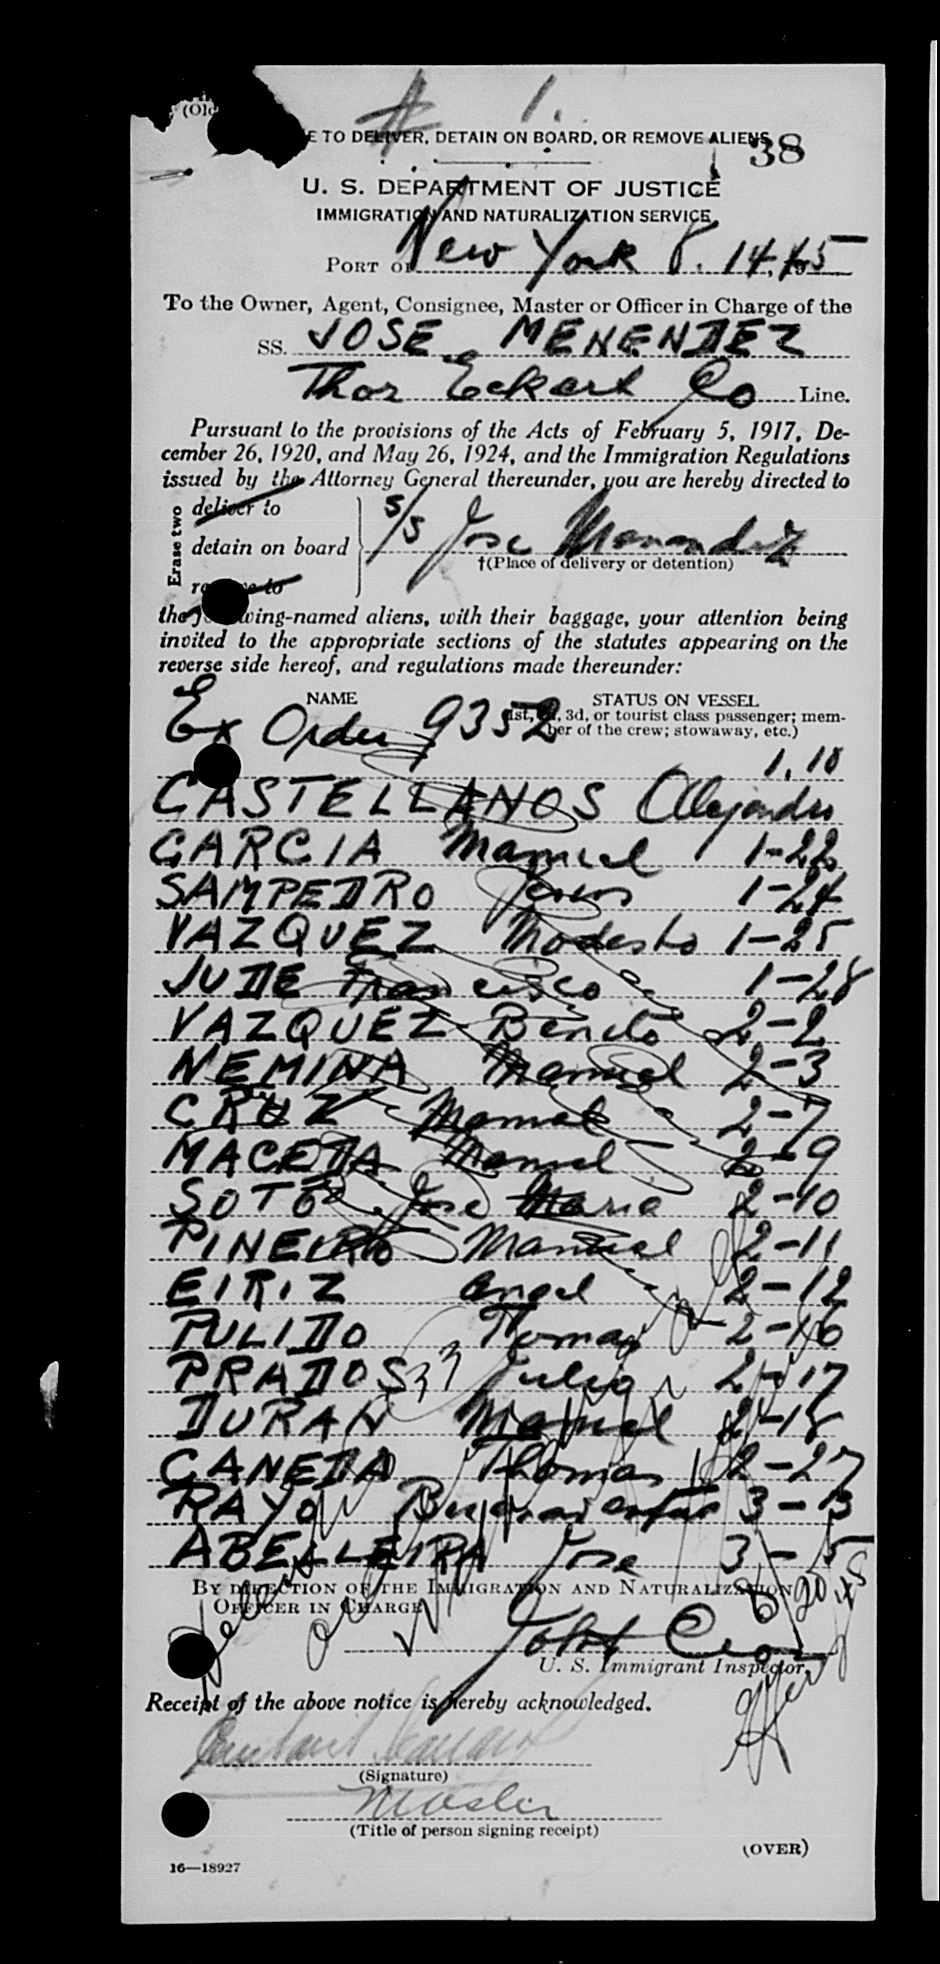 (Old
# 1.
E TO DELIVER, DETAIN ON BOARD, OR REMOVE ALIENS
38
U. S. DEPARTMENT OF JUSTICE
IMMIGRATION AND NATURALIZATION SERVICE
PORT OF New York 8. 14, 45
To the Owner, Agent, Consignee, Master or Officer in Charge of the
SS. JOSE MENENDEZ
Thor Eckert Co Line.
Pursuant to the provisions of the Acts of February 5, 1917, De-
cember 26, 1920, and May 26, 1924, and the Immigration Regulations
issued by the Attorney General thereunder, you are hereby directed to
Erase two
deliver to
detain on board
remove to
S/S Jose Menendez
†(Place of delivery or detention)
the following-named aliens, with their baggage, your attention being
invited to the appropriate sections of the statutes appearing on the
reverse side hereof, and regulations made thereunder:
NAME STATUS ON VESSEL
(1st, 2d, 3d, or tourist class passenger; mem-
ber of the crew; stowaway, etc.)
Ex Order 9352
1, 18
CASTELLANOS Alejandro
GARCIA Manuel 1-22
SAMPEDRO Jesus 1-24
VAZQUEZ Modesto 1-25
JUDE Francisco 1-28
VAZQUEZ Benito 2-2
NEMINA Manuel 2-3
CRUZ Manuel 2-7
MACEDA Manuel 2-9
SOTO Jose Maria 2-10
PINEIRO Manuel 2-11
EIRIZ Angel 2-12
PULIDO Tomas 2-16
PRADOS Julio 2-17
DURAN Manuel 2-18
CANEDA Thomas 2-27
RAYO Buenaventura 3-3
ABELLEIRA Jose 3-5
BY DIRECTION OF THE IMMIGRATION AND NATURALIZATION
OFFICER IN CHARGE
8/20/45
U. S. Immigrant Inspector.
Receipt of the above notice is hereby acknowledged.
(Signature)
Master
(Title of person signing receipt)
(OVER)
16—18927